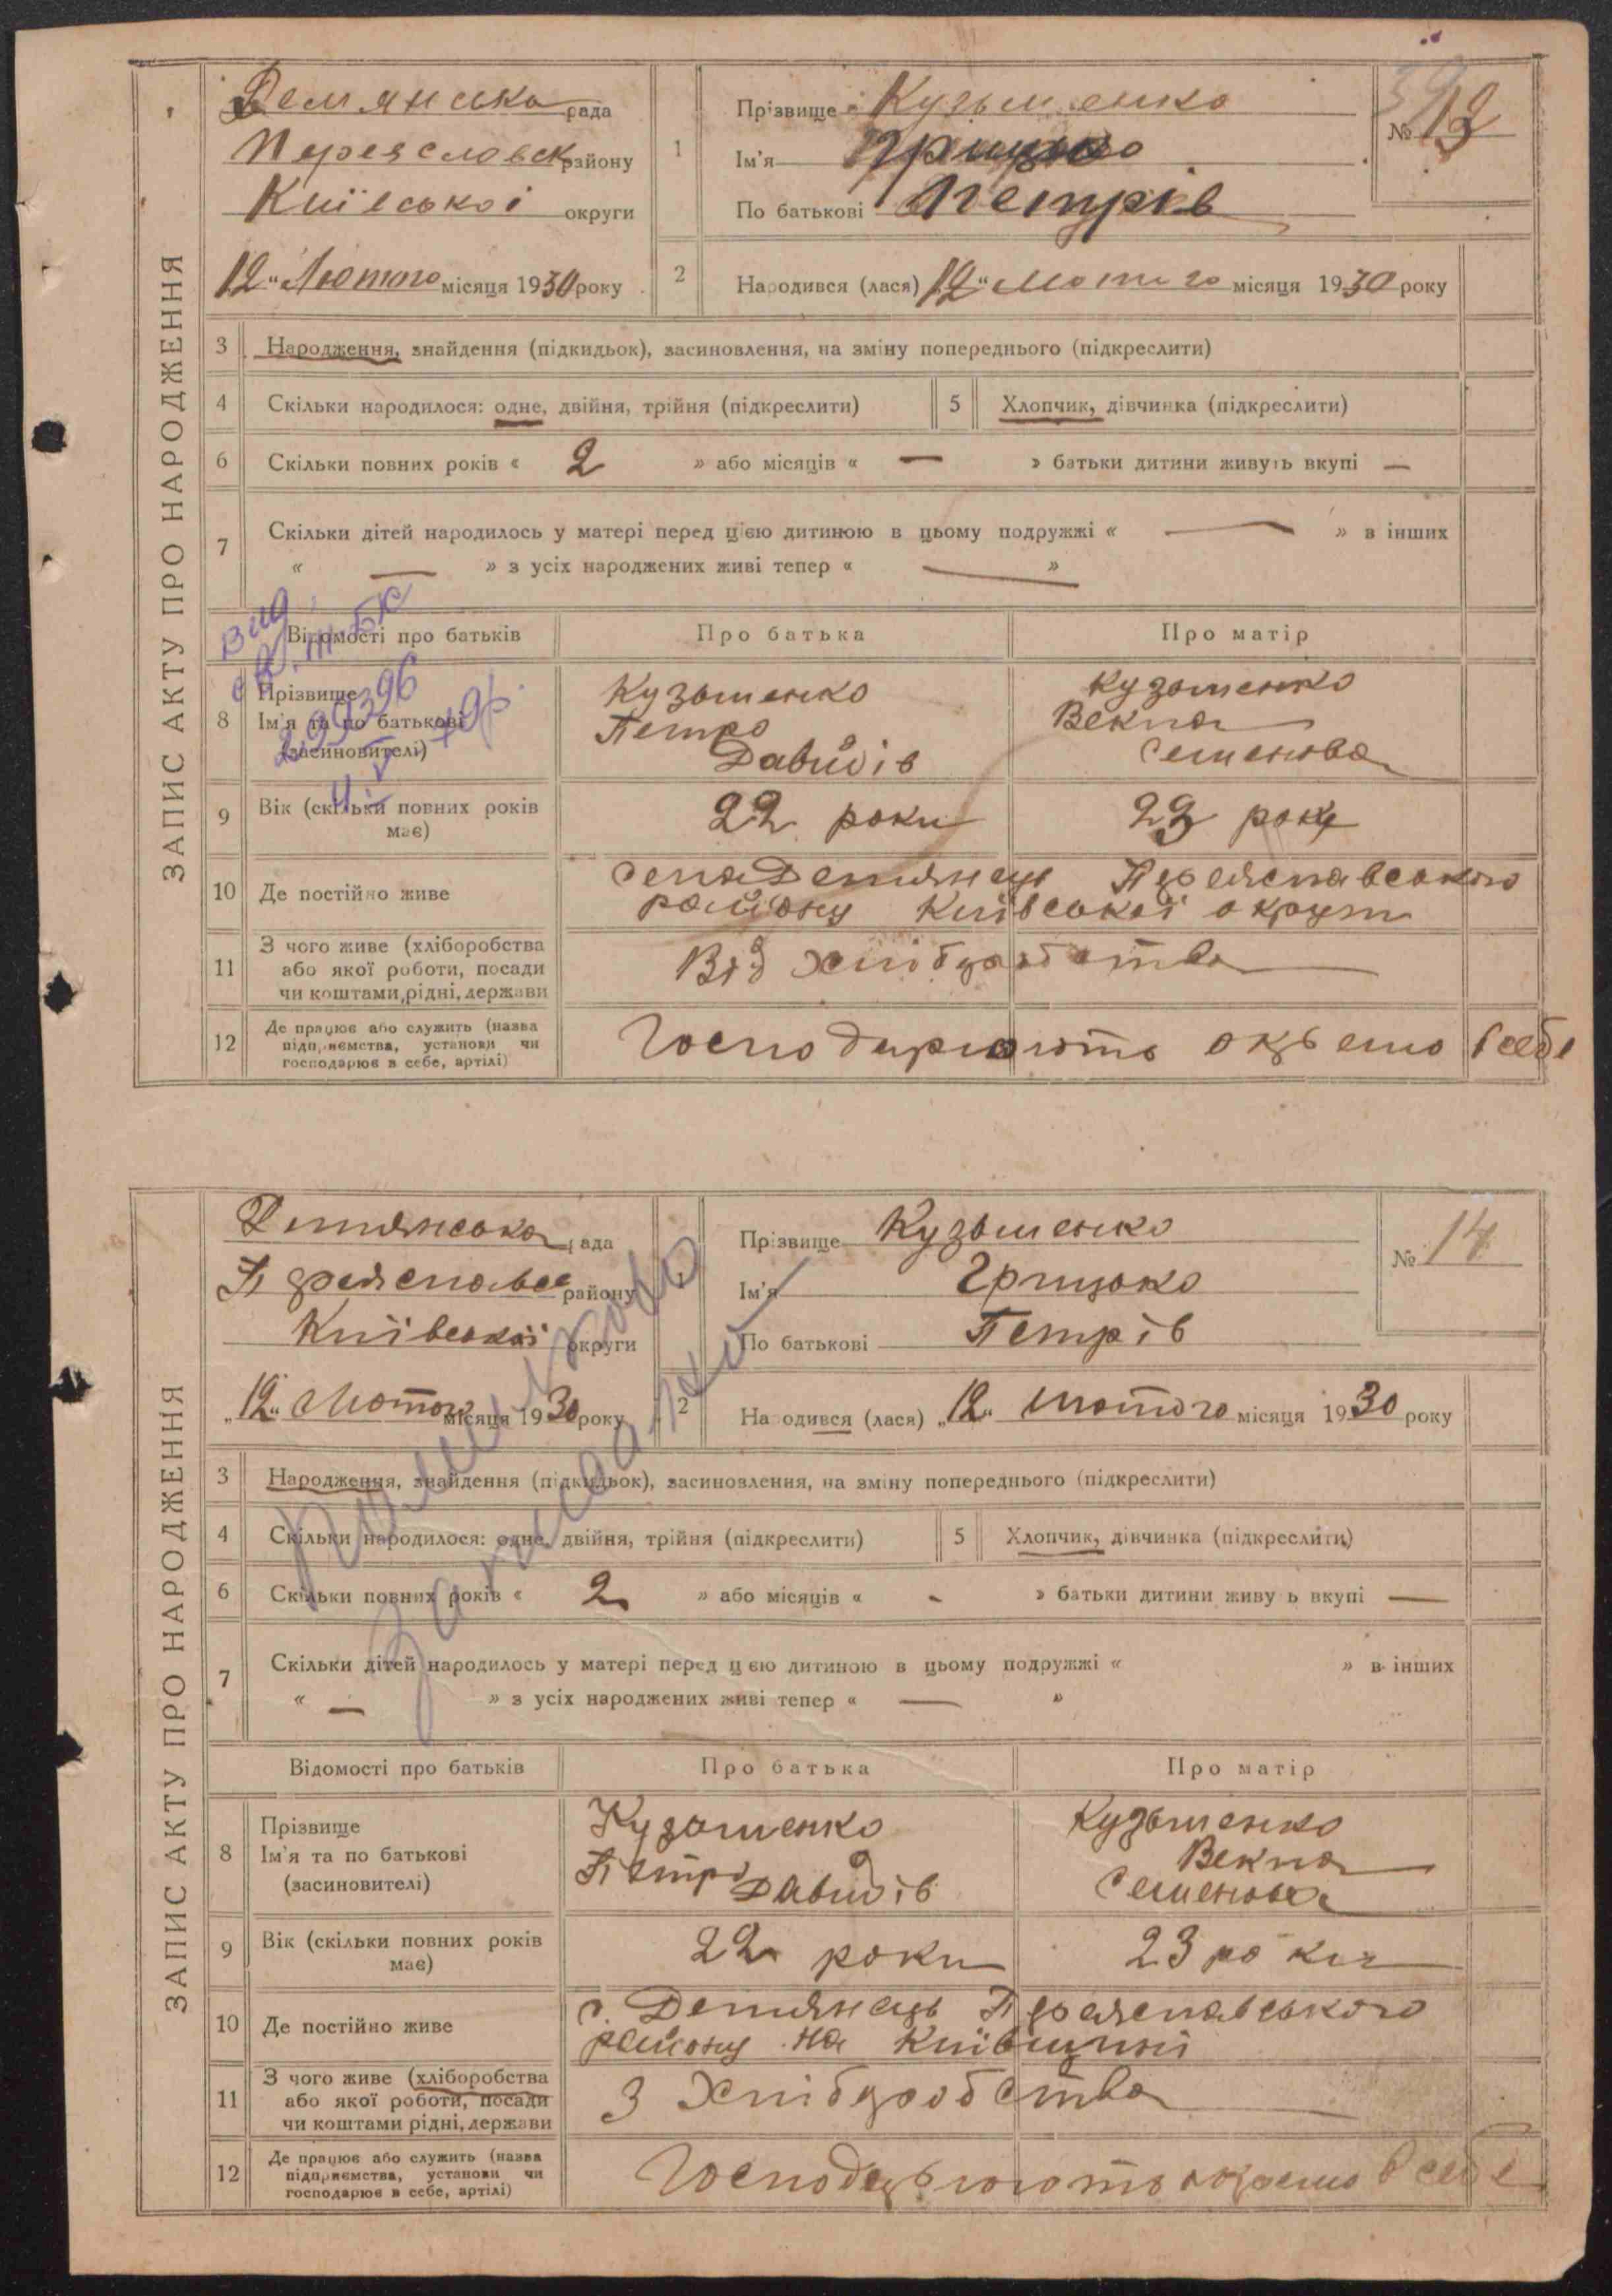 ЗАПИС АКТУ ПРО НАРОДЖЕННЯ
Демянська рада
Переясловськ району
Київської округи
12 „ Лютого місяця 1930 року
1
Прізвище Кузьменко
Ім'я Грицько
По батькові Петрів
№
2 Народився (лася) 12 „ Лютого місяця 1930 року
3 Народження, знайдення (підкидьок), засиновлення, на зміну попереднього (підкреслити)
4 Скільки народилося: одне, двійня, трійня (підкреслити) 5 Хлопчик, дівчинка (підкреслити)
6 Скільки повних років « 2 » або місяців « — » батьки дитини живуть вкупі —
7 Скільки дітей народилось у матері перед цією дитиною в цьому подружжі « — » в інших
« — » з усіх народжених живі тепер « — »
Відомості про батьків Про батька Про матір
8 Прізвище
Ім'я та по батькові
(засиновителі)
Кузьменко
Петро
Давидів
Кузьменко
Векла
Семенова
9 Вік (скільки повних років
має)
22 роки
23 роки
10 Де постійно живе
села Демянець Переяславського
району Київської округи
11 З чого живе (хліборобства
або якої роботи, посади
чи коштами, рідні, держави
Від хліборобства
12 Де працює або служить (назва
підприємства, установи чи
господарює в себе, артілі)
Господарюють окремо в себе
ЗАПИС АКТУ ПРО НАРОДЖЕННЯ
Демянська рада
Переяславсь району
Київської округи
„12„ Лютого місяця 1930 року
1
Прізвище Кузьменко
Ім'я Грицько
По батькові Петрів
№ 14
2 Народився (лася) „12„ Лютого місяця 1930 року
3 Народження, знайдення (підкидьок), засиновлення, на зміну попереднього (підкреслити)
4 Скільки народилося: одне, двійня, трійня (підкреслити) 5 Хлопчик, дівчинка (підкреслити)
6 Скільки повних років « 2 » або місяців « - » батьки дитини живуть вкупі —
7 Скільки дітей народилось у матері перед цією дитиною в цьому подружжі « » в інших
« — » з усіх народжених живі тепер « — »
Відомості про батьків Про батька Про матір
8 Прізвище
Ім'я та по батькові
(засиновителі)
Кузьменко
Петро Давидів
Кузьменко
Векла
Семенова
9 Вік (скільки повних років
має)
22 роки
23 роки
10 Де постійно живе
с. Демянець Переяславського
району на Київщині
11 З чого живе (хліборобства
або якої роботи, посади
чи коштами рідні, держави
З Хліборобства
12 Де працює або служить (назва
підприємства, установи чи
господарює в себе, артілі)
Господарюють окремо в себе